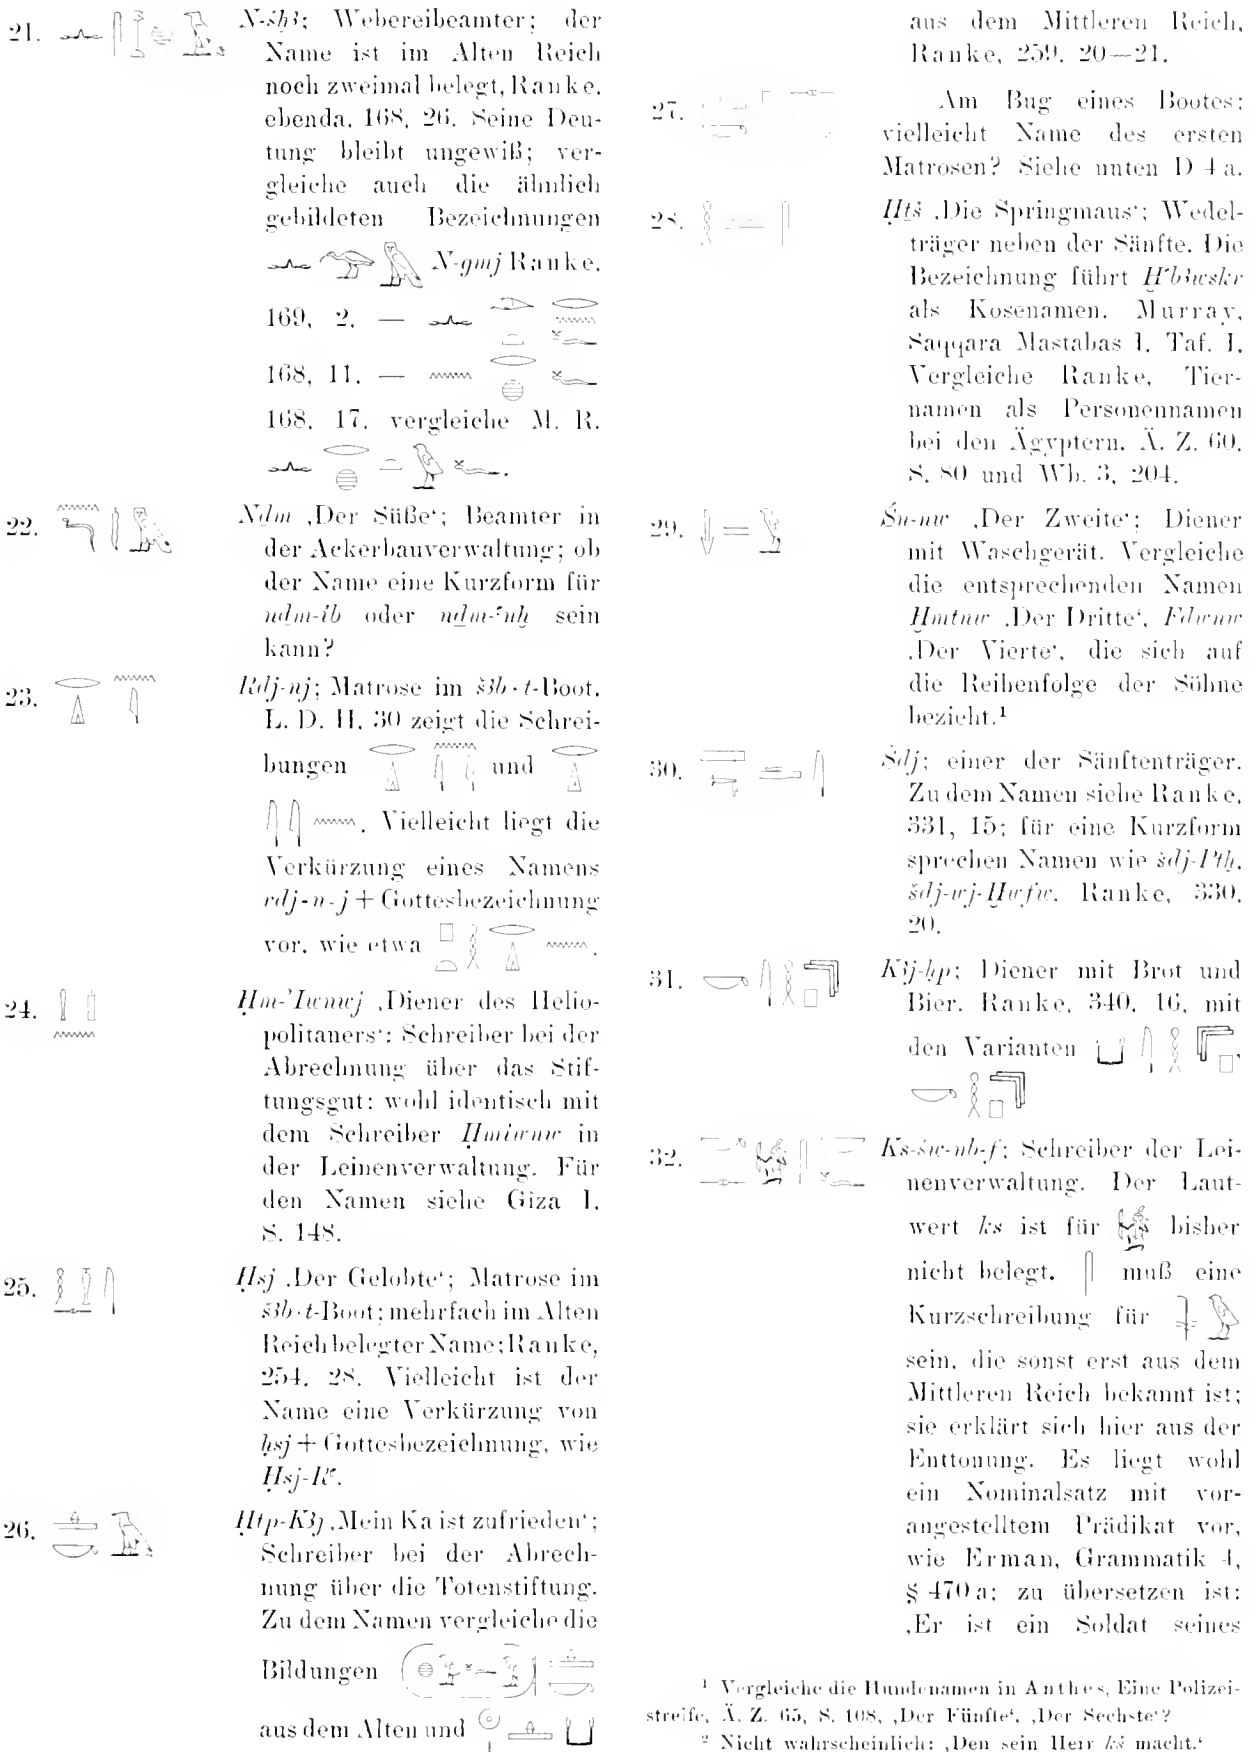 21. N-śḫꜣ; Webereibeamter; der
Name ist im Alten Reich
noch zweimal belegt, Ranke,
ebenda, 168, 26. Seine Deu-
tung bleibt ungewiß; ver-
gleiche auch die ähnlich
gebildeten Bezeichnungen
N-gmj Ranke,
169, 2. —
168, 11. —
168, 17. vergleiche M. R.
22. Nḏm ‚Der Süße‘; Beamter in
der Ackerbauverwaltung; ob
der Name eine Kurzform für
nḏm-ib oder nḏm-ꜥnḫ sein
kann?
23. Rdj-nj; Matrose im šꜣb·t-Boot.
L. D. II, 30 zeigt die Schrei-
bungen und
. Vielleicht liegt die
Verkürzung eines Namens
rdj-n-j + Gottesbezeichnung
vor, wie etwa .
24. Ḥm-'Iwnwj ‚Diener des Helio-
politaners‘: Schreiber bei der
Abrechnung über das Stif-
tungsgut: wohl identisch mit
dem Schreiber Ḥmiwnw in
der Leinenverwaltung. Für
den Namen siehe Giza I,
S. 148.
25. Ḥsj ‚Der Gelobte‘; Matrose im
šꜣb·t-Boot; mehrfach im Alten
Reich belegter Name; Ranke,
254, 28. Vielleicht ist der
Name eine Verkürzung von
ḥsj + Gottesbezeichnung, wie
Ḥsj-Rꜥ.
26. Ḥtp-Kꜣj ‚Mein Ka ist zufrieden‘;
Schreiber bei der Abrech-
nung über die Totenstiftung.
Zu dem Namen vergleiche die
Bildungen
aus dem Alten und
aus dem Mittleren Reich,
Ranke, 259, 20—21.
27. Am Bug eines Bootes;
vielleicht Name des ersten
Matrosen? Siehe unten D 4 a.
28. Ḥṯś ‚Die Springmaus‘; Wedel-
träger neben der Sänfte. Die
Bezeichnung führt Ḫꜥbꜣwskr
als Kosenamen. Murray,
Saqqara Mastabas I, Taf. I,
Vergleiche Ranke, Tier-
namen als Personennamen
bei den Ägyptern. Ä. Z. 60,
S. 80 und Wb. 3, 204.
29. Śn-nw ‚Der Zweite‘; Diener
mit Waschgerät. Vergleiche
die entsprechenden Namen
Ḫmtnw ‚Der Dritte‘, Fdwnw
‚Der Vierte‘, die sich auf
die Reihenfolge der Söhne
bezieht.¹
30. Šdj; einer der Sänftenträger.
Zu dem Namen siehe Ranke,
331, 15; für eine Kurzform
sprechen Namen wie šdj-Ptḥ,
šdj-wj-Ḫwfw. Ranke, 330,
20.
31. Kꜣj-ḥp; Diener mit Brot und
Bier. Ranke, 340, 16, mit
den Varianten ,
32. Ks-św-nb-f; Schreiber der Lei-
nenverwaltung. Der Laut-
wert ks ist für bisher
nicht belegt. muß eine
Kurzschreibung für
sein, die sonst erst aus dem
Mittleren Reich bekannt ist;
sie erklärt sich hier aus der
Enttonung. Es liegt wohl
ein Nominalsatz mit vor-
angestelltem Prädikat vor,
wie Erman, Grammatik 4,
§ 470 a; zu übersetzen ist:
‚Er ist ein Soldat seines
¹ Vergleiche die Hundenamen in Anthes, Eine Polizei-
streife, Ä. Z. 65, S. 108, ‚Der Fünfte‘, ‚Der Sechste‘?
² Nicht wahrscheinlich: ‚Den sein Herr kś macht.‘